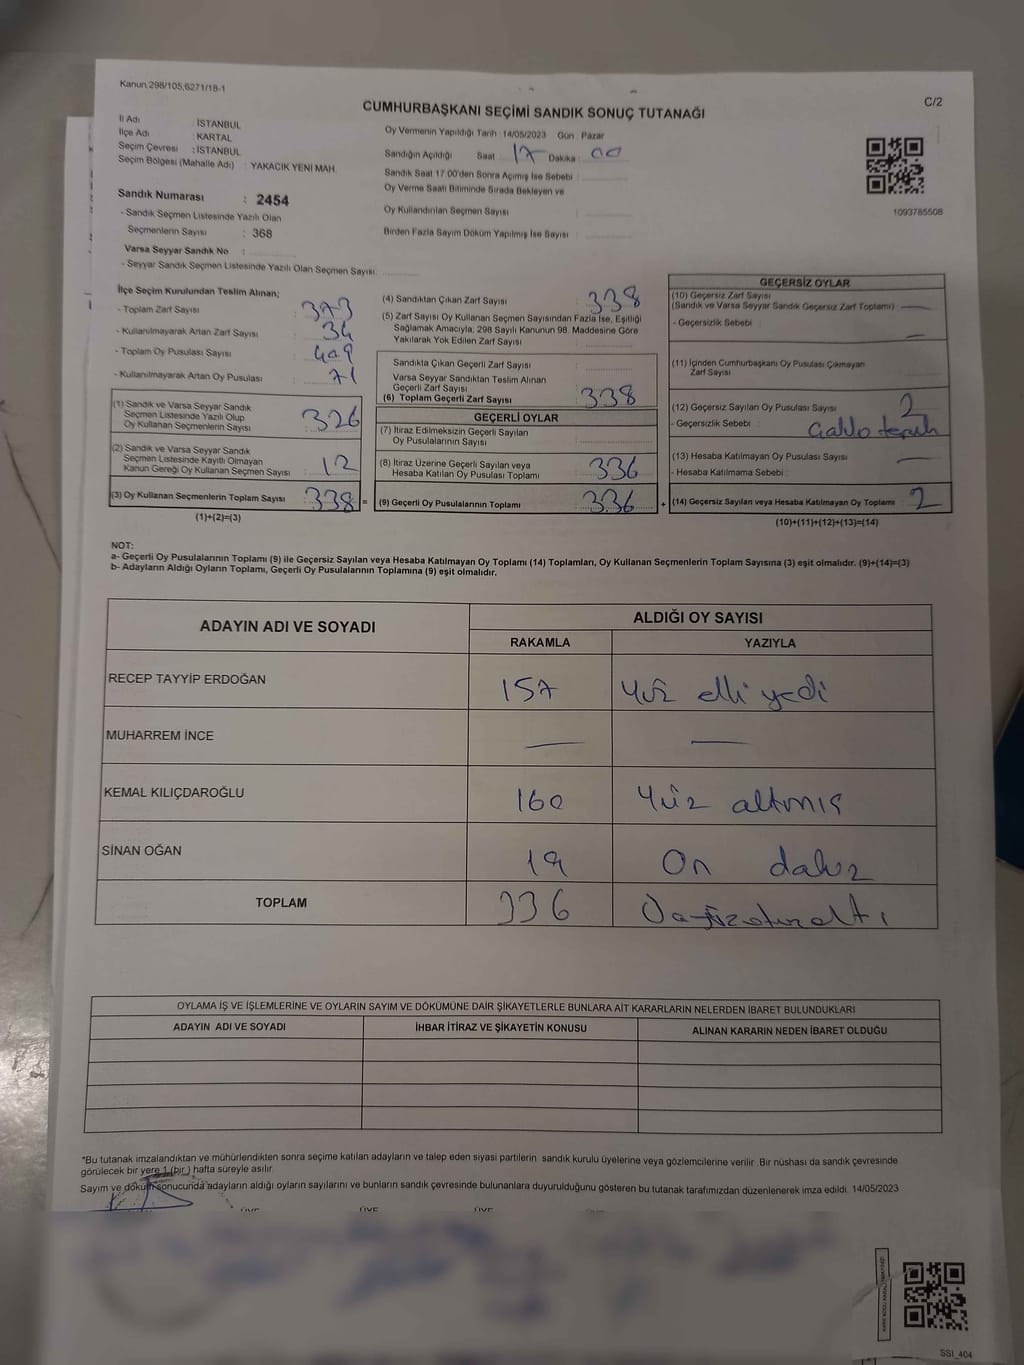 Kanun.298/105,6271/18-1
CUMHURBAŞKANI SEÇİMİ SANDIK SONUÇ TUTANAĞI
C/2
İl Adı : İSTANBUL
İlçe Adı : KARTAL
Seçim Çevresi : İSTANBUL
Seçim Bölgesi (Mahalle Adı) : YAKACIK YENİ MAH.
Sandık Numarası : 2454
- Sandık Seçmen Listesinde Yazılı Olan
Seçmenlerin Sayısı : 368
Varsa Seyyar Sandık No :
- Seyyar Sandık Seçmen Listesinde Yazılı Olan Seçmen Sayısı:
Oy Vermenin Yapıldığı Tarih : 14/05/2023 Gün : Pazar
Sandığın Açıldığı Saat 17 Dakika : 00
Sandık Saat 17:00'den Sonra Açımış İse Sebebi :
Oy Verme Saati Bitiminde Sırada Bekleyen ve
Oy Kullandırılan Seçmen Sayısı
Birden Fazla Sayım Döküm Yapılmış İse Sayısı :
1093785508
İlçe Seçim Kurulundan Teslim Alınan;
- Toplam Zarf Sayısı : 373
- Kullanılmayarak Artan Zarf Sayısı : 34
- Toplam Oy Pusulası Sayısı : 409
- Kullanılmayarak Artan Oy Pusulası : 71
(1) Sandık ve Varsa Seyyar Sandık
Seçmen Listesinde Yazılı Olup
Oy Kullanan Seçmenlerin Sayısı : 326
(2) Sandık ve Varsa Seyyar Sandık
Seçmen Listesinde Kayıtlı Olmayan
Kanun Gereği Oy Kullanan Seçmen Sayısı : 12
(3) Oy Kullanan Seçmenlerin Toplam Sayısı : 338 =
(1)+(2)=(3)
(4) Sandıktan Çıkan Zarf Sayısı : 338
(5) Zarf Sayısı Oy Kullanan Seçmen Sayısından Fazla İse, Eşitliği
Sağlamak Amacıyla, 298 Sayılı Kanunun 98. Maddesine Göre
Yakılarak Yok Edilen Zarf Sayısı :
Sandıkta Çıkan Geçerli Zarf Sayısı :
Varsa Seyyar Sandıktan Teslim Alınan
Geçerli Zarf Sayısı :
(6) Toplam Geçerli Zarf Sayısı : 338
GEÇERLİ OYLAR
(7) İtiraz Edilmeksizin Geçerli Sayılan
Oy Pusulalarının Sayısı :
(8) İtiraz Üzerine Geçerli Sayılan veya
Hesaba Katılan Oy Pusulası Toplamı : 336
(9) Geçerli Oy Pusulalarının Toplamı : 336 +
GEÇERSİZ OYLAR
(10) Geçersiz Zarf Sayısı
(Sandık ve Varsa Seyyar Sandık Geçersiz Zarf Toplamı) : —
- Geçersizlik Sebebi : —
(11) İçinden Cumhurbaşkanı Oy Pusulası Çıkmayan
Zarf Sayısı
(12) Geçersiz Sayılan Oy Pusulası Sayısı 2
- Geçersizlik Sebebi :
(13) Hesaba Katılmayan Oy Pusulası Sayısı —
- Hesaba Katılmama Sebebi :
(14) Geçersiz Sayılan veya Hesaba Katılmayan Oy Toplamı 2
(10)+(11)+(12)+(13)=(14)
NOT:
a- Geçerli Oy Pusulalarının Toplamı (9) ile Geçersiz Sayılan veya Hesaba Katılmayan Oy Toplamı (14) Toplamları, Oy Kullanan Seçmenlerin Toplam Sayısına (3) eşit olmalıdır. (9)+(14)=(3)
b- Adayların Aldığı Oyların Toplamı, Geçerli Oy Pusulalarının Toplamına (9) eşit olmalıdır.
ADAYIN ADI VE SOYADI
ALDIĞI OY SAYISI
RAKAMLA YAZIYLA
RECEP TAYYİP ERDOĞAN 157 Yüz elli yedi
MUHARREM İNCE — —
KEMAL KILIÇDAROĞLU 160 Yüz altmış
SİNAN OĞAN 19 On dokuz
TOPLAM 336
OYLAMA İŞ VE İŞLEMLERİNE VE OYLARIN SAYIM VE DÖKÜMÜNE DAİR ŞİKAYETLERLE BUNLARA AİT KARARLARIN NELERDEN İBARET BULUNDUKLARI
ADAYIN ADI VE SOYADI İHBAR İTİRAZ VE ŞİKAYETİN KONUSU ALINAN KARARIN NEDEN İBARET OLDUĞU
*Bu tutanak imzalandıktan ve mühürlendikten sonra seçime katılan adayların ve talep eden siyasi partilerin sandık kurulu üyelerine veya gözlemcilerine verilir .Bir nüshası da sandık çevresinde
görülecek bir yere 1 (bir ) hafta süreyle asılır.
Sayım ve döküm sonucunda adayların aldığı oyların sayılarını ve bunların sandık çevresinde bulunanlara duyurulduğunu gösteren bu tutanak tarafımızdan düzenlenerek imza edildi. 14/05/2023
ÜYE ÜYE ÜYE
SSI_404